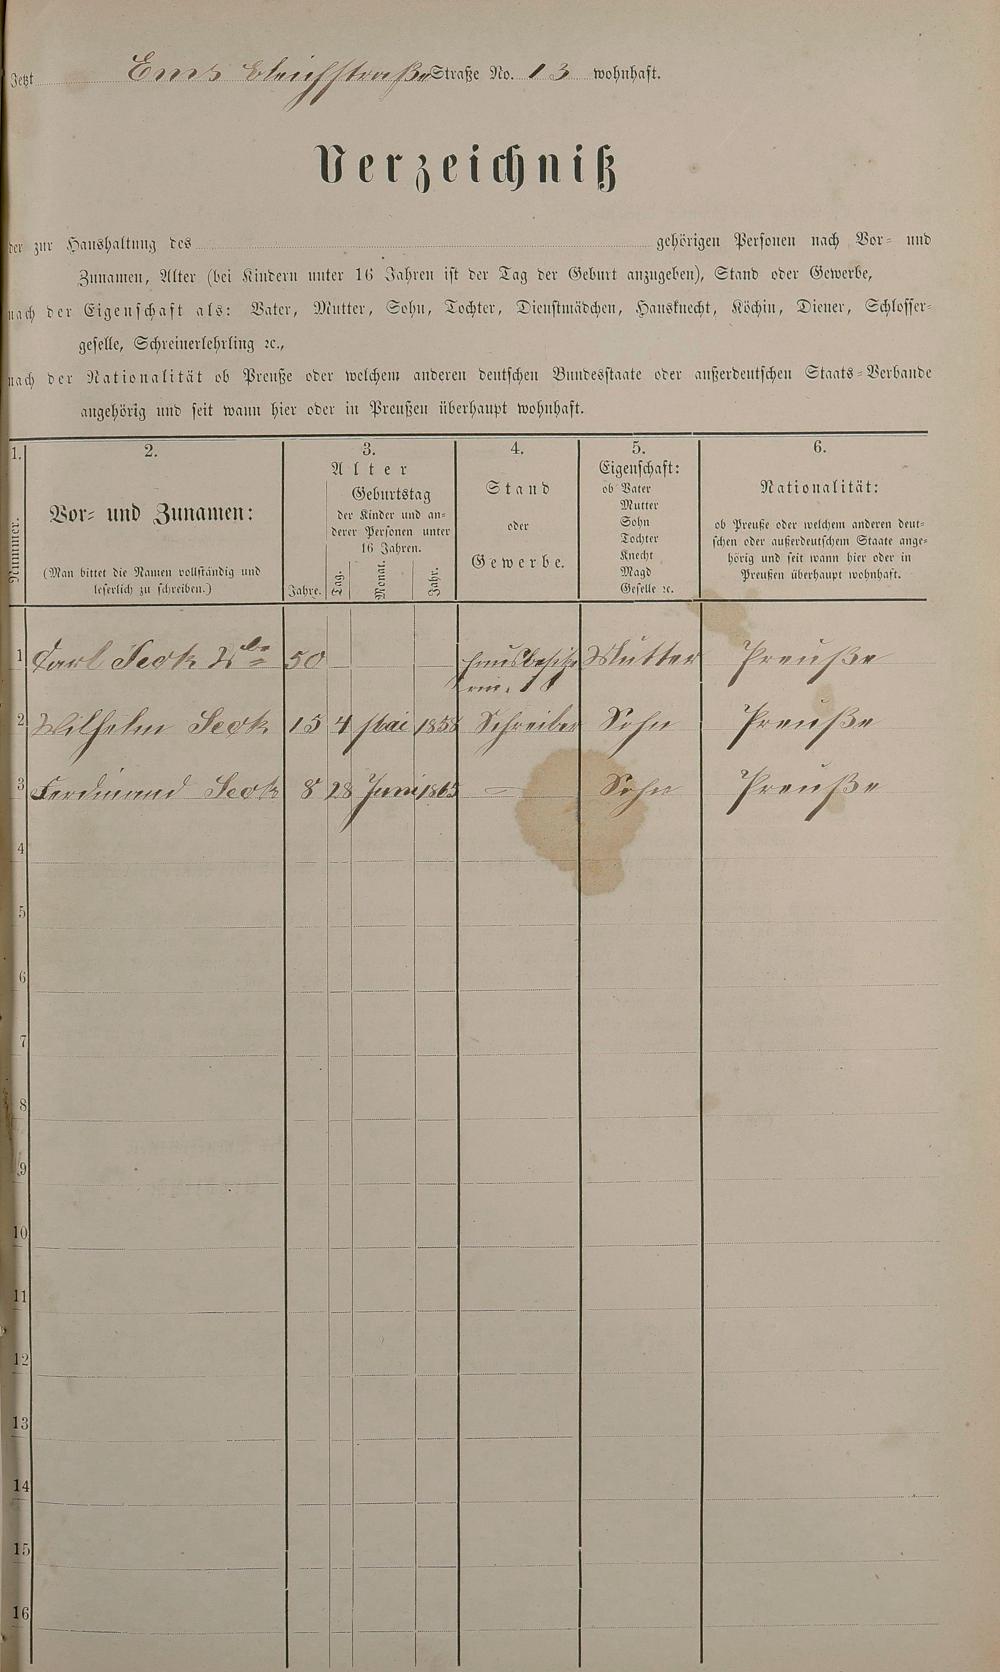 Jetzt Ems Bleichstraße Straße No. 13 wohnhaft.
Verzeichniß
der zur Haushaltung des gehörigen Personen nach Vor- und
Zunamen, Alter (bei Kindern unter 16 Jahren ist der Tag der Geburt anzugeben), Stand oder Gewerbe,
nach der Eigenschaft als: Vater, Mutter, Sohn, Tochter, Dienstmädchen, Hausknecht, Köchin, Diener, Schlosser-
geselle, Schreinerlehrling ꝛc.,
nach der Nationalität ob Preuße oder welchem anderen deutschen Bundesstaate oder außerdeutschen Staats-Verbande
angehörig und seit wann hier oder in Preußen überhaupt wohnhaft.
1.
Nummer.
2.
Vor- und Zunamen:
(Man bittet die Namen vollständig und
leserlich zu schreiben.)
3.
Alter
Geburtstag
der Kinder und an-
derer Personen unter
16 Jahren.
Jahre. Tag. Monat. Jahr.
4.
Stand
oder
Gewerbe.
5.
Eigenschaft:
ob Vater
Mutter
Sohn
Tochter
Knecht
Magd
Geselle ꝛc.
6.
Nationalität:
ob Preuße oder welchem anderen deut-
schen oder außerdeutschem Staate ange-
hörig und seit wann hier oder in
Preußen überhaupt wohnhaft.
1 Carl Seck 50 Hausbesitze Mutter Preuße
rin.
2 Wilhelm Seck 15 4 Mai 1858 Schreiber Sohn Preuße
3 Ferdinand Seck 8 28 Juni 1865 — Sohn Preuße
4
5
6
7
8
9
10
11
12
13
14
15
16